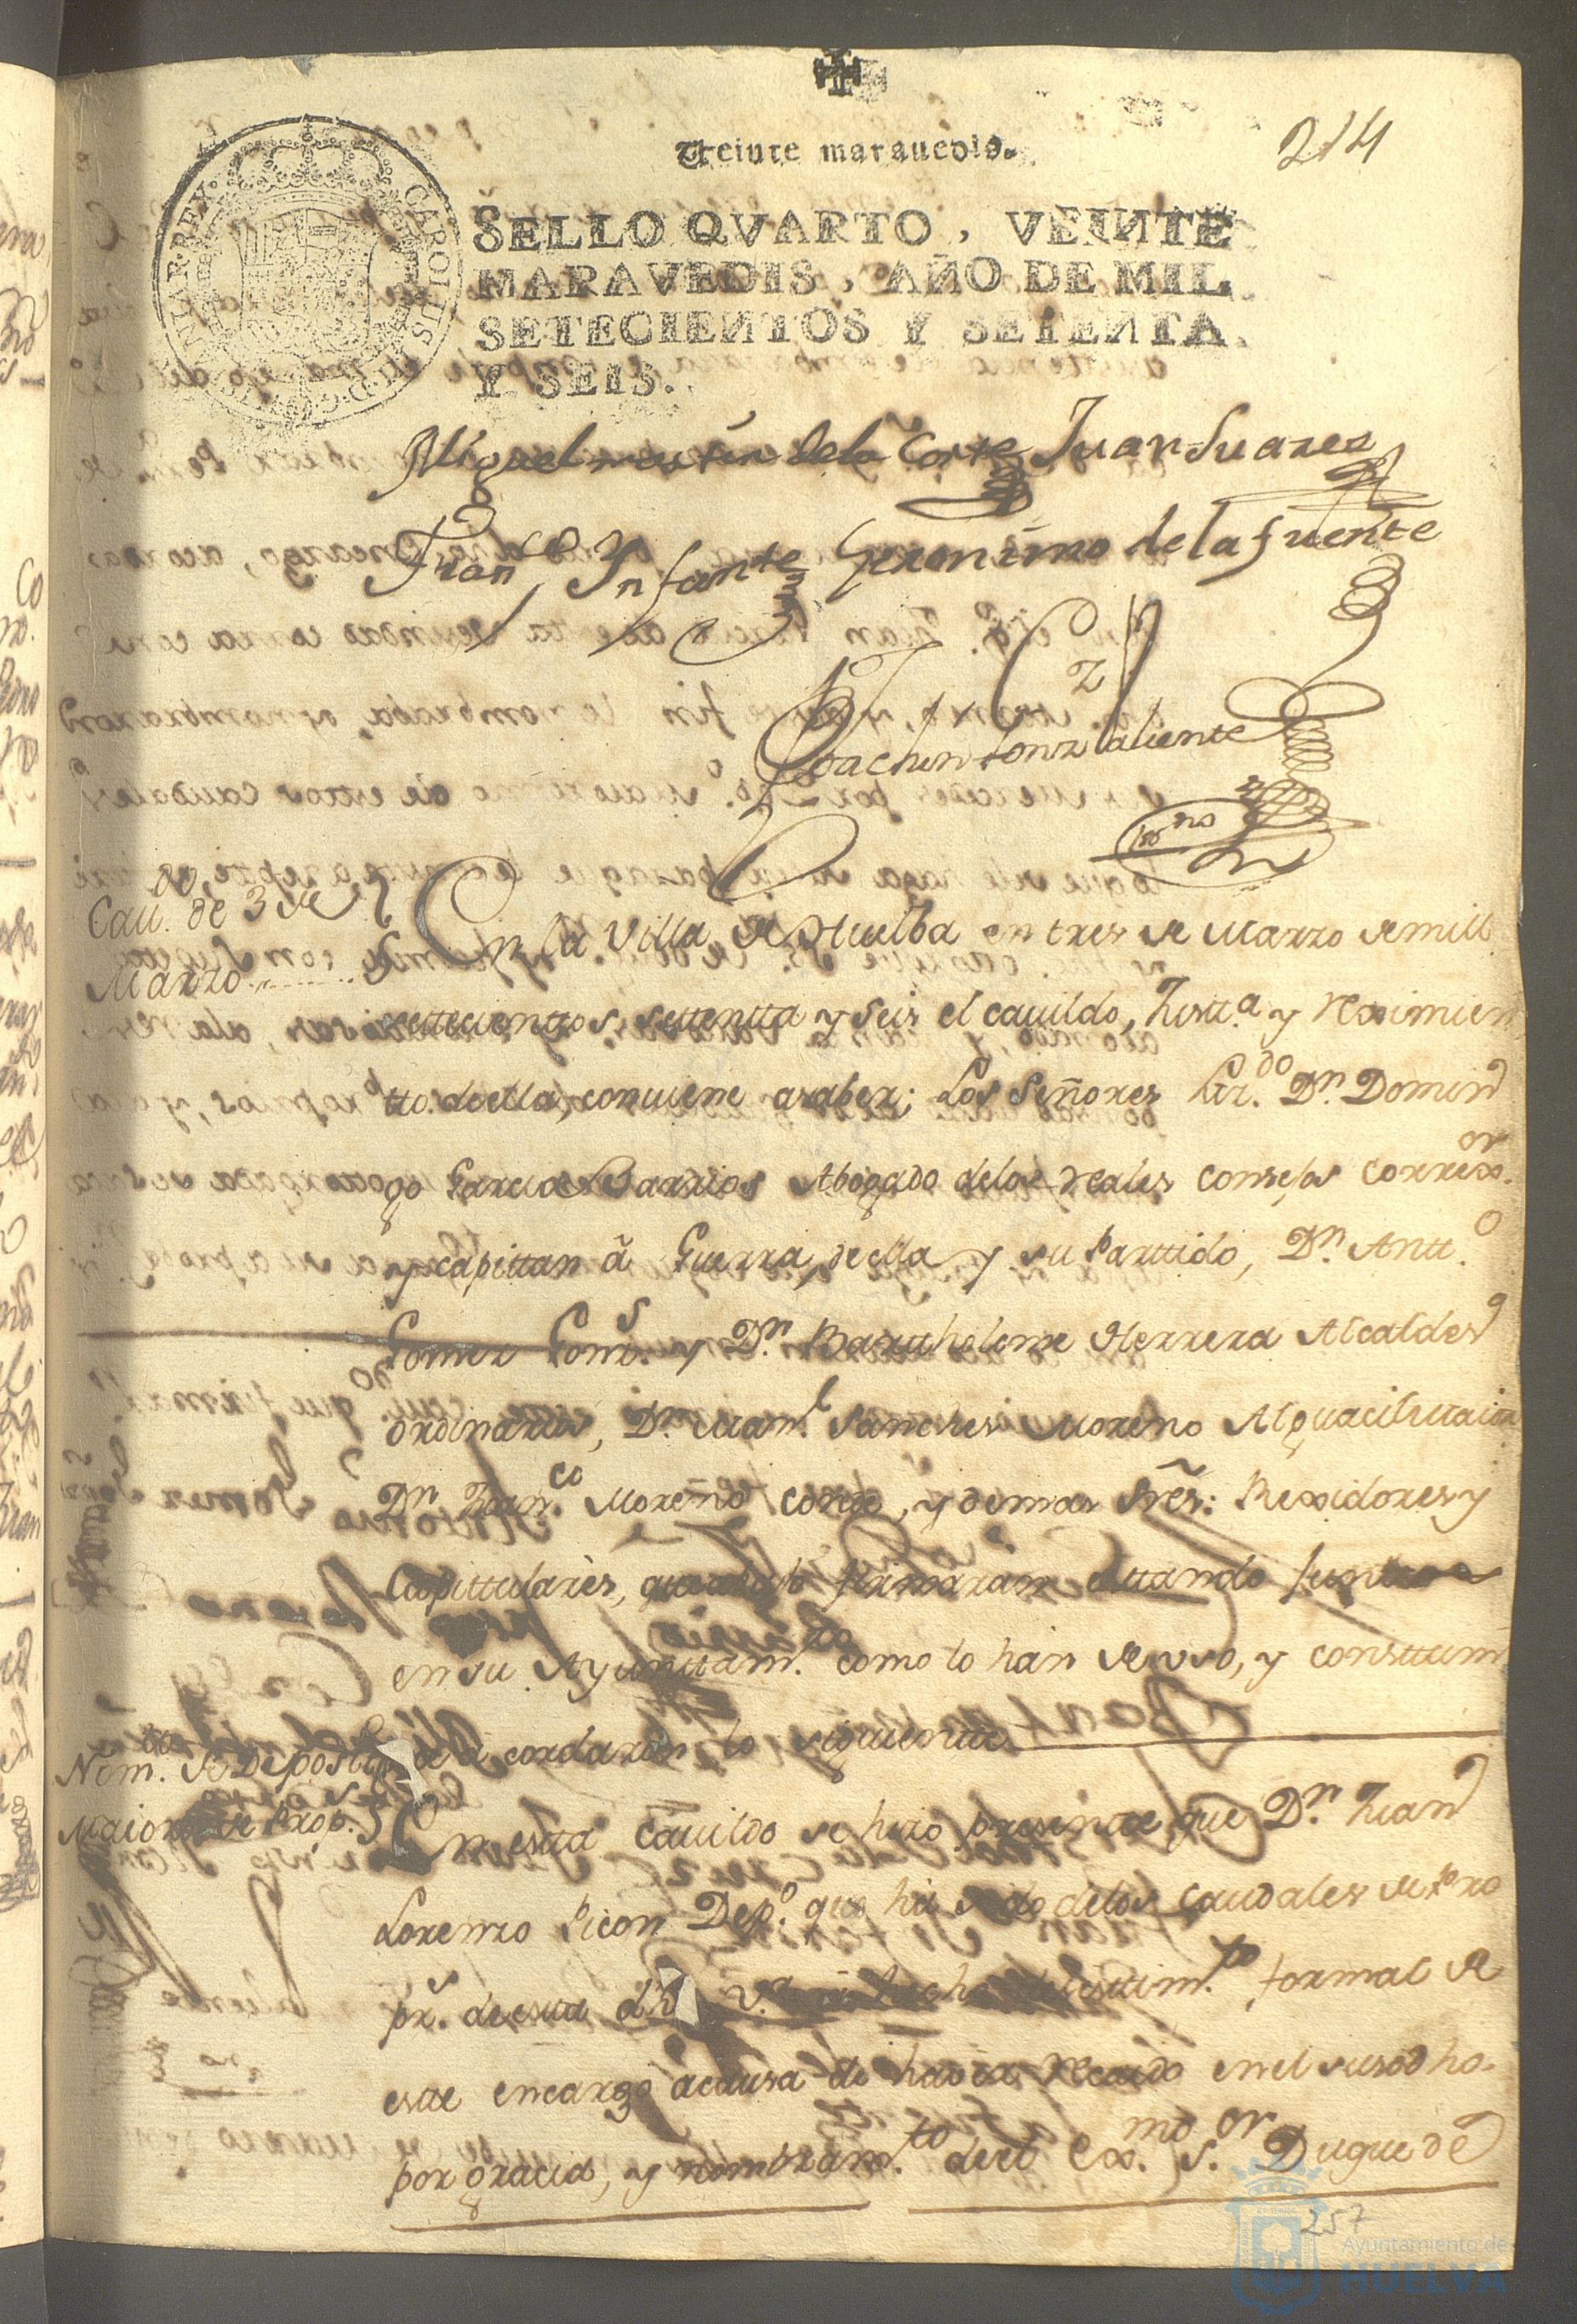 Veinte maravedis.
214
SELLO QVARTO, VEINTE
MARAVEDIS, AÑO DE MIL
SETECIENTOS Y SETENTA
Y SEIS.
CAROLUS III D.G. HISPANIAR. REX.
Miguel martin de la Corte Juan Suarez
Fran.co Infante Geronimo de la fuente
Joachin Gonz Valiente
Cau.do de 3 de
Marzo
En la Villa de Huelba en tres de Marzo de mill
settecienttos, settentta y seis el cauildo, Justt.a y Reximien
tto de ella, conuiene a saber; Los Señores Liz.do Dn. Domin
go Garcia Barrios Abogado de los reales Consejos Correxor.
y capittan â Guerra, de ella y su Parttido, Dn. Antt.o
Gomez Gonz.s y Dn. Barttholome Herrera Alcaldes
ordinarios, Dn. Man.l Sanches Moreno Alguacil maior
Dn. Juan Moreno Conde, y demas Sres. Rexidores y
Capittulares, que abajo firmarân esttando junttos
en su Ayunttam.to como lo han de uso, y costtum
Nom.to de Depositt.o
Maiordo de Prop.s
e acordaron lo siguientte
En estta Cauildo se hizo presentte que Dn. Juan
Lorenzo Picon Dep.o que ha sido de los Caudales de Pro
p.s de estta dha V.a ha hecho desistim.to formal de
estte encargo acausa de hauer Recaido en el susodho.
por gracia, y nombram.to de el Exmo. S.or Dugue de
257
Ayuntamiento de
HUELVA